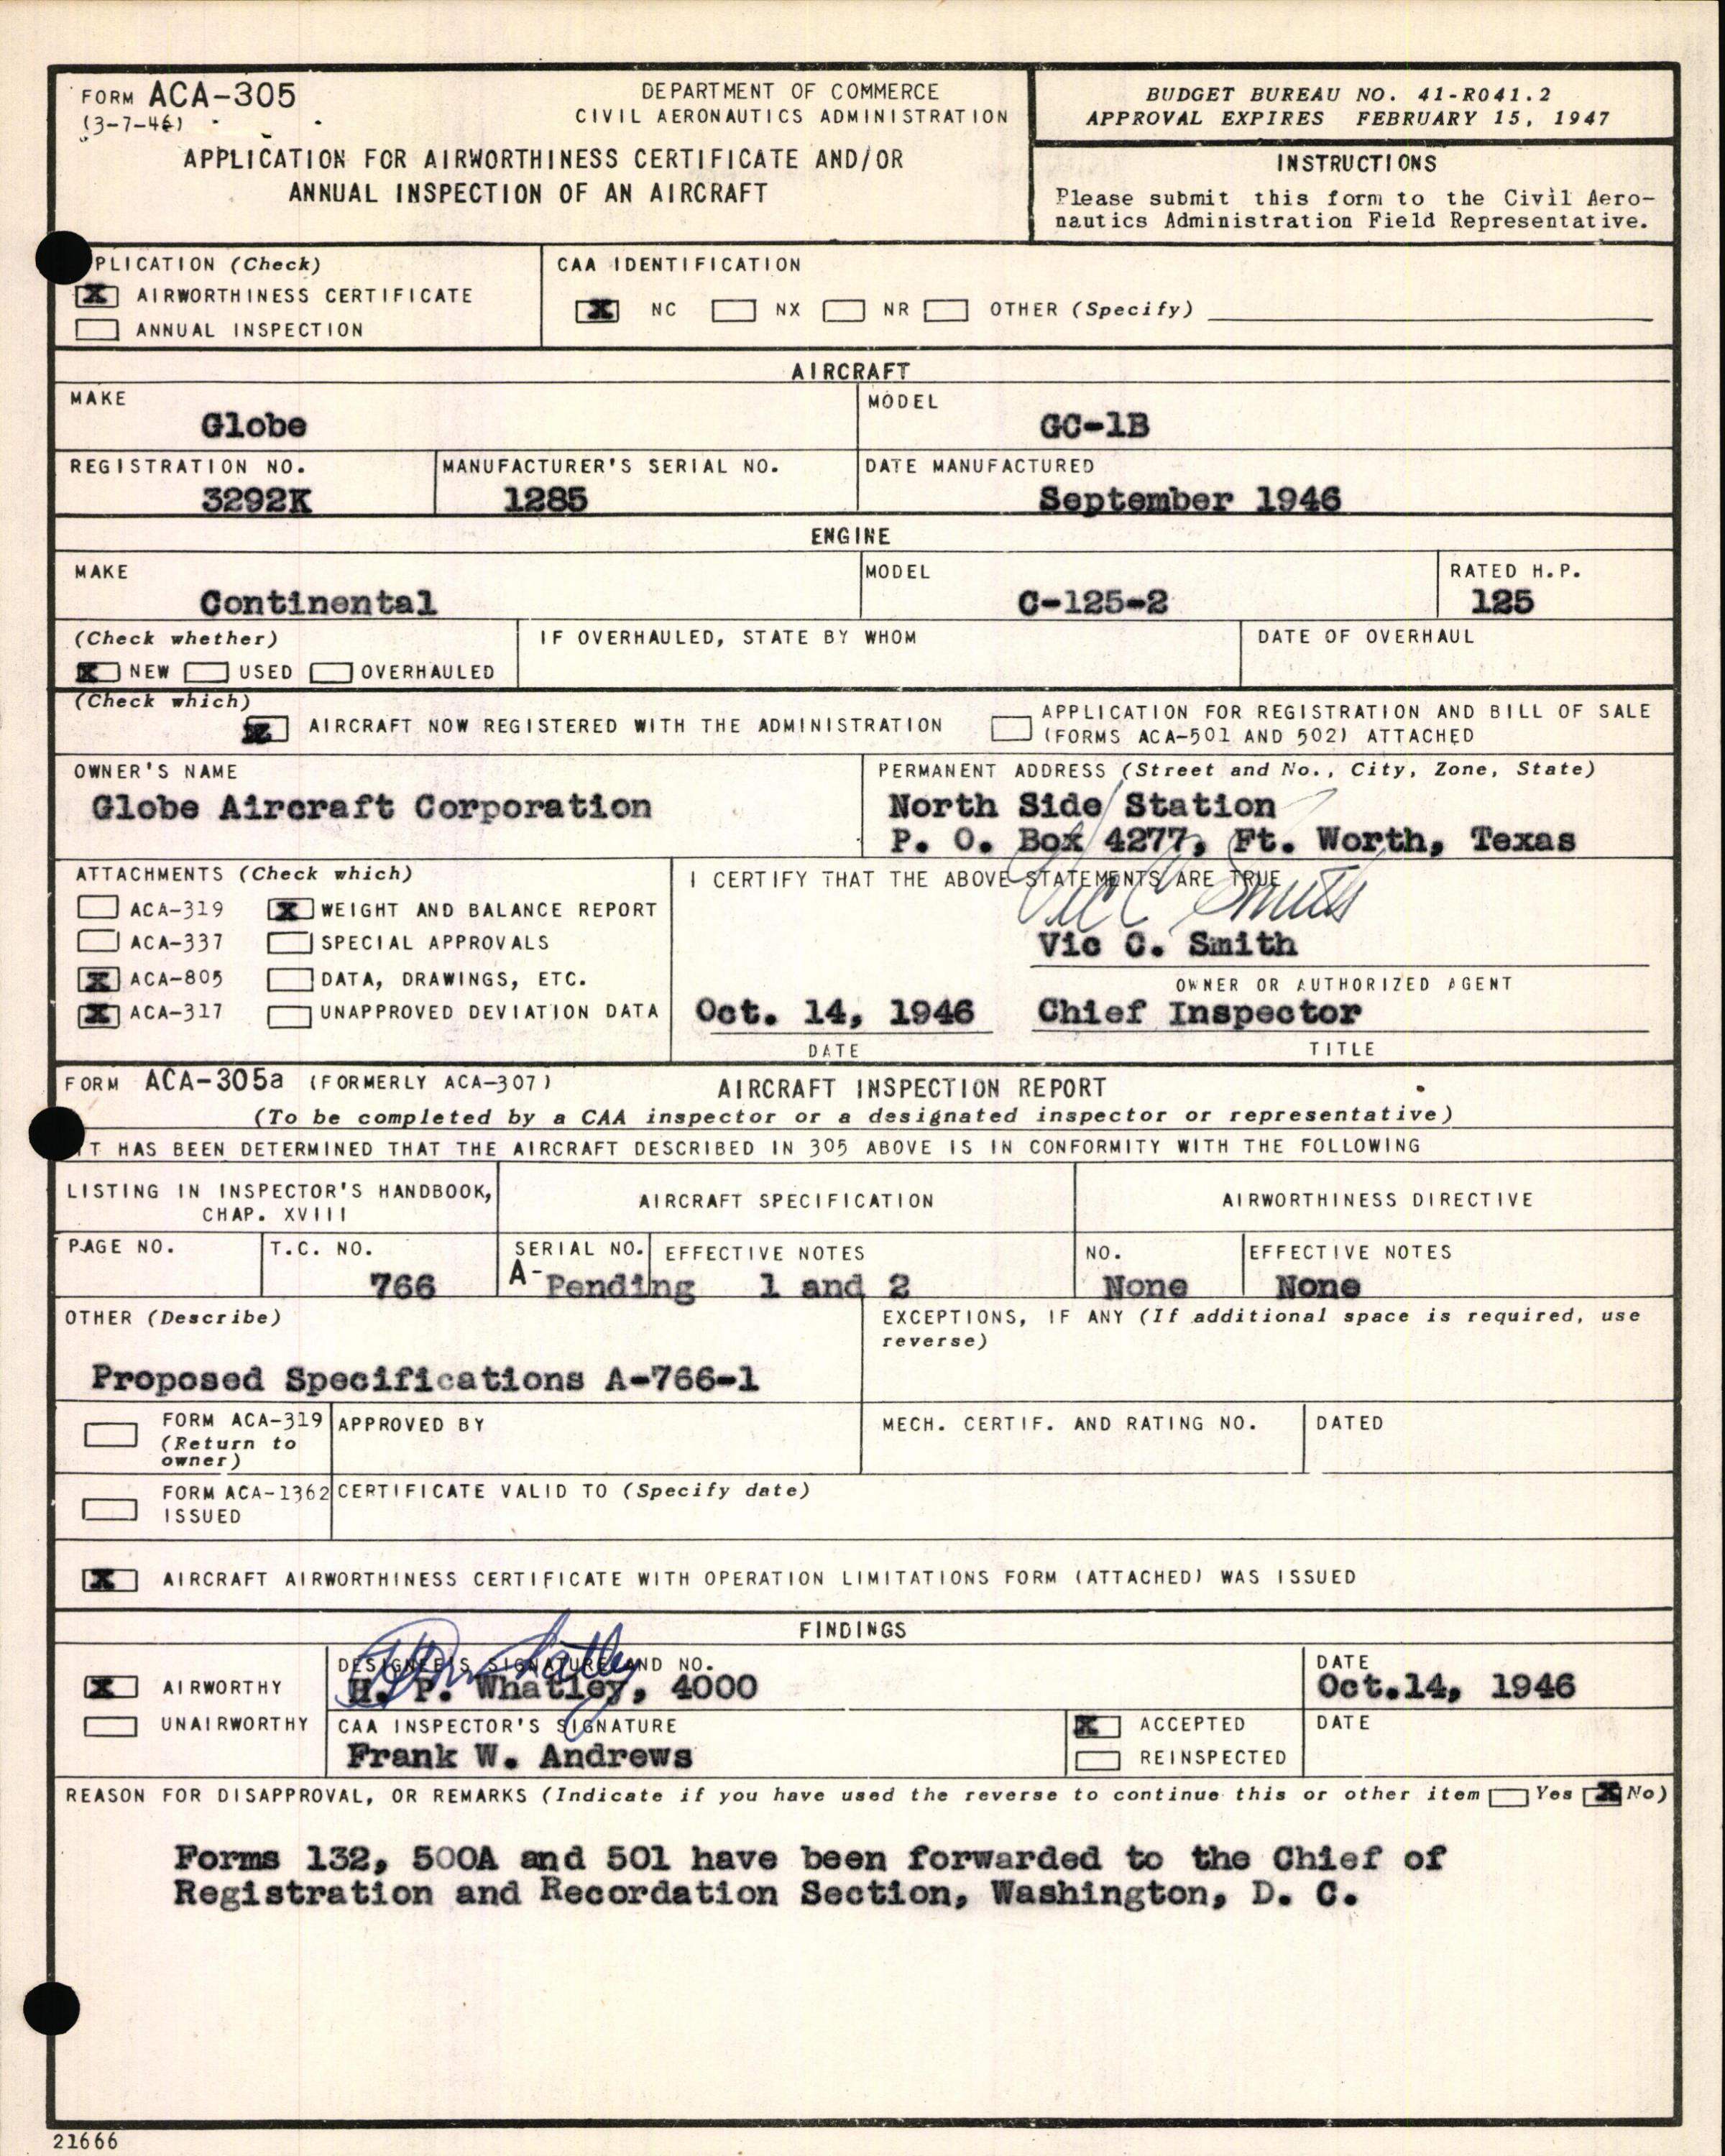 FORM ACA-305
(3-7-46)
DEPARTMENT OF COMMERCE
CIVIL AERONAUTICS ADMINISTRATION
APPLICATION FOR AIRWORTHINESS CERTIFICATE AND/OR
ANNUAL INSPECTION OF AN AIRCRAFT
BUDGET BUREAU NO. 41-R041.2
APPROVAL EXPIRES FEBRUARY 15, 1947
INSTRUCTIONS
Please submit this form to the Civil Aero-
nautics Administration Field Representative.
PLICATION (Check)
X AIRWORTHINESS CERTIFICATE
ANNUAL INSPECTION
CAA IDENTIFICATION
X NC NX NR OTHER (Specify)
AIRCRAFT
MAKE
Globe
MODEL
GC-1B
REGISTRATION NO.
3292K
MANUFACTURER'S SERIAL NO.
1285
DATE MANUFACTURED
September 1946
ENGINE
MAKE
Continental
MODEL
C-125-2
RATED H.P.
125
(Check whether)
X NEW USED OVERHAULED
IF OVERHAULED, STATE BY WHOM
DATE OF OVERHAUL
(Check which)
X AIRCRAFT NOW REGISTERED WITH THE ADMINISTRATION
APPLICATION FOR REGISTRATION AND BILL OF SALE
(FORMS ACA-501 AND 502) ATTACHED
OWNER'S NAME
Globe Aircraft Corporation
PERMANENT ADDRESS (Street and No., City, Zone, State)
North Side Station
P. O. Box 4277, Ft. Worth, Texas
ATTACHMENTS (Check which)
ACA-319 X WEIGHT AND BALANCE REPORT
ACA-337 SPECIAL APPROVALS
X ACA-805 DATA, DRAWINGS, ETC.
X ACA-317 UNAPPROVED DEVIATION DATA
I CERTIFY THAT THE ABOVE STATEMENTS ARE TRUE
Vic C Smith
Vic C. Smith
OWNER OR AUTHORIZED AGENT
Oct. 14, 1946 Chief Inspector
DATE TITLE
FORM ACA-305a (FORMERLY ACA-307) AIRCRAFT INSPECTION REPORT
(To be completed by a CAA inspector or a designated inspector or representative)
IT HAS BEEN DETERMINED THAT THE AIRCRAFT DESCRIBED IN 305 ABOVE IS IN CONFORMITY WITH THE FOLLOWING
LISTING IN INSPECTOR'S HANDBOOK,
CHAP. XVIII
AIRCRAFT SPECIFICATION
AIRWORTHINESS DIRECTIVE
PAGE NO.
T.C. NO.
766
SERIAL NO.
A-Pending
EFFECTIVE NOTES
1 and 2
NO.
None
EFFECTIVE NOTES
None
OTHER (Describe)
Proposed Specifications A-766-1
EXCEPTIONS, IF ANY (If additional space is required, use
reverse)
FORM ACA-319
(Return to
owner)
APPROVED BY
MECH. CERTIF. AND RATING NO.
DATED
FORM ACA-1362
ISSUED
CERTIFICATE VALID TO (Specify date)
X AIRCRAFT AIRWORTHINESS CERTIFICATE WITH OPERATION LIMITATIONS FORM (ATTACHED) WAS ISSUED
FINDINGS
X AIRWORTHY
UNAIRWORTHY
DESIGNEE'S SIGNATURE AND NO.
H. P. Whatley, 4000
DATE
Oct.14, 1946
CAA INSPECTOR'S SIGNATURE
Frank W. Andrews
X ACCEPTED
REINSPECTED
DATE
REASON FOR DISAPPROVAL, OR REMARKS (Indicate if you have used the reverse to continue this or other item Yes X No)
Forms 132, 500A and 501 have been forwarded to the Chief of
Registration and Recordation Section, Washington, D. C.
21666